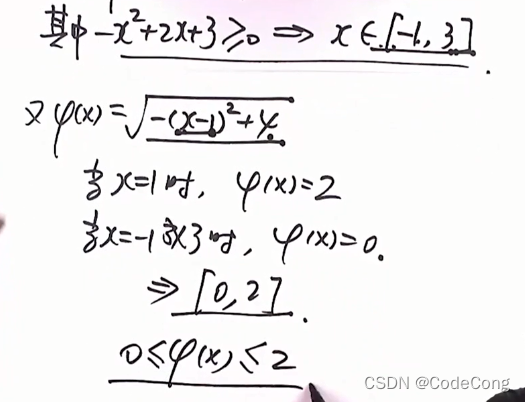 其中-x²+2x+3≥0 ⇒ x∈[-1,3].
又φ(x)=√(-(x-1)²+4)
当x=1时, φ(x)=2
当x=-1或3时, φ(x)=0.
⇒[0,2].
0≤φ(x)≤2
CSDN @CodeCong